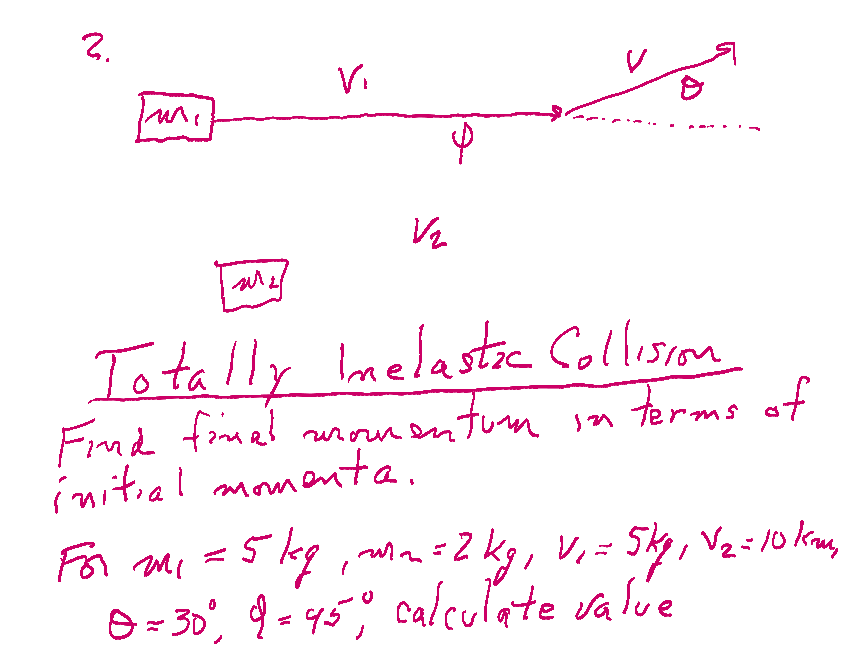 2.
V₁
V
θ
m₁
φ
V₂
m₂
Totally Inelastic Collision
Find final momentum in terms of
initial momenta.
For m₁ = 5 kg, m₂ = 2 kg, V₁ = 5kg, V₂ = 10 km,
θ = 30°, φ = 45°, calculate value